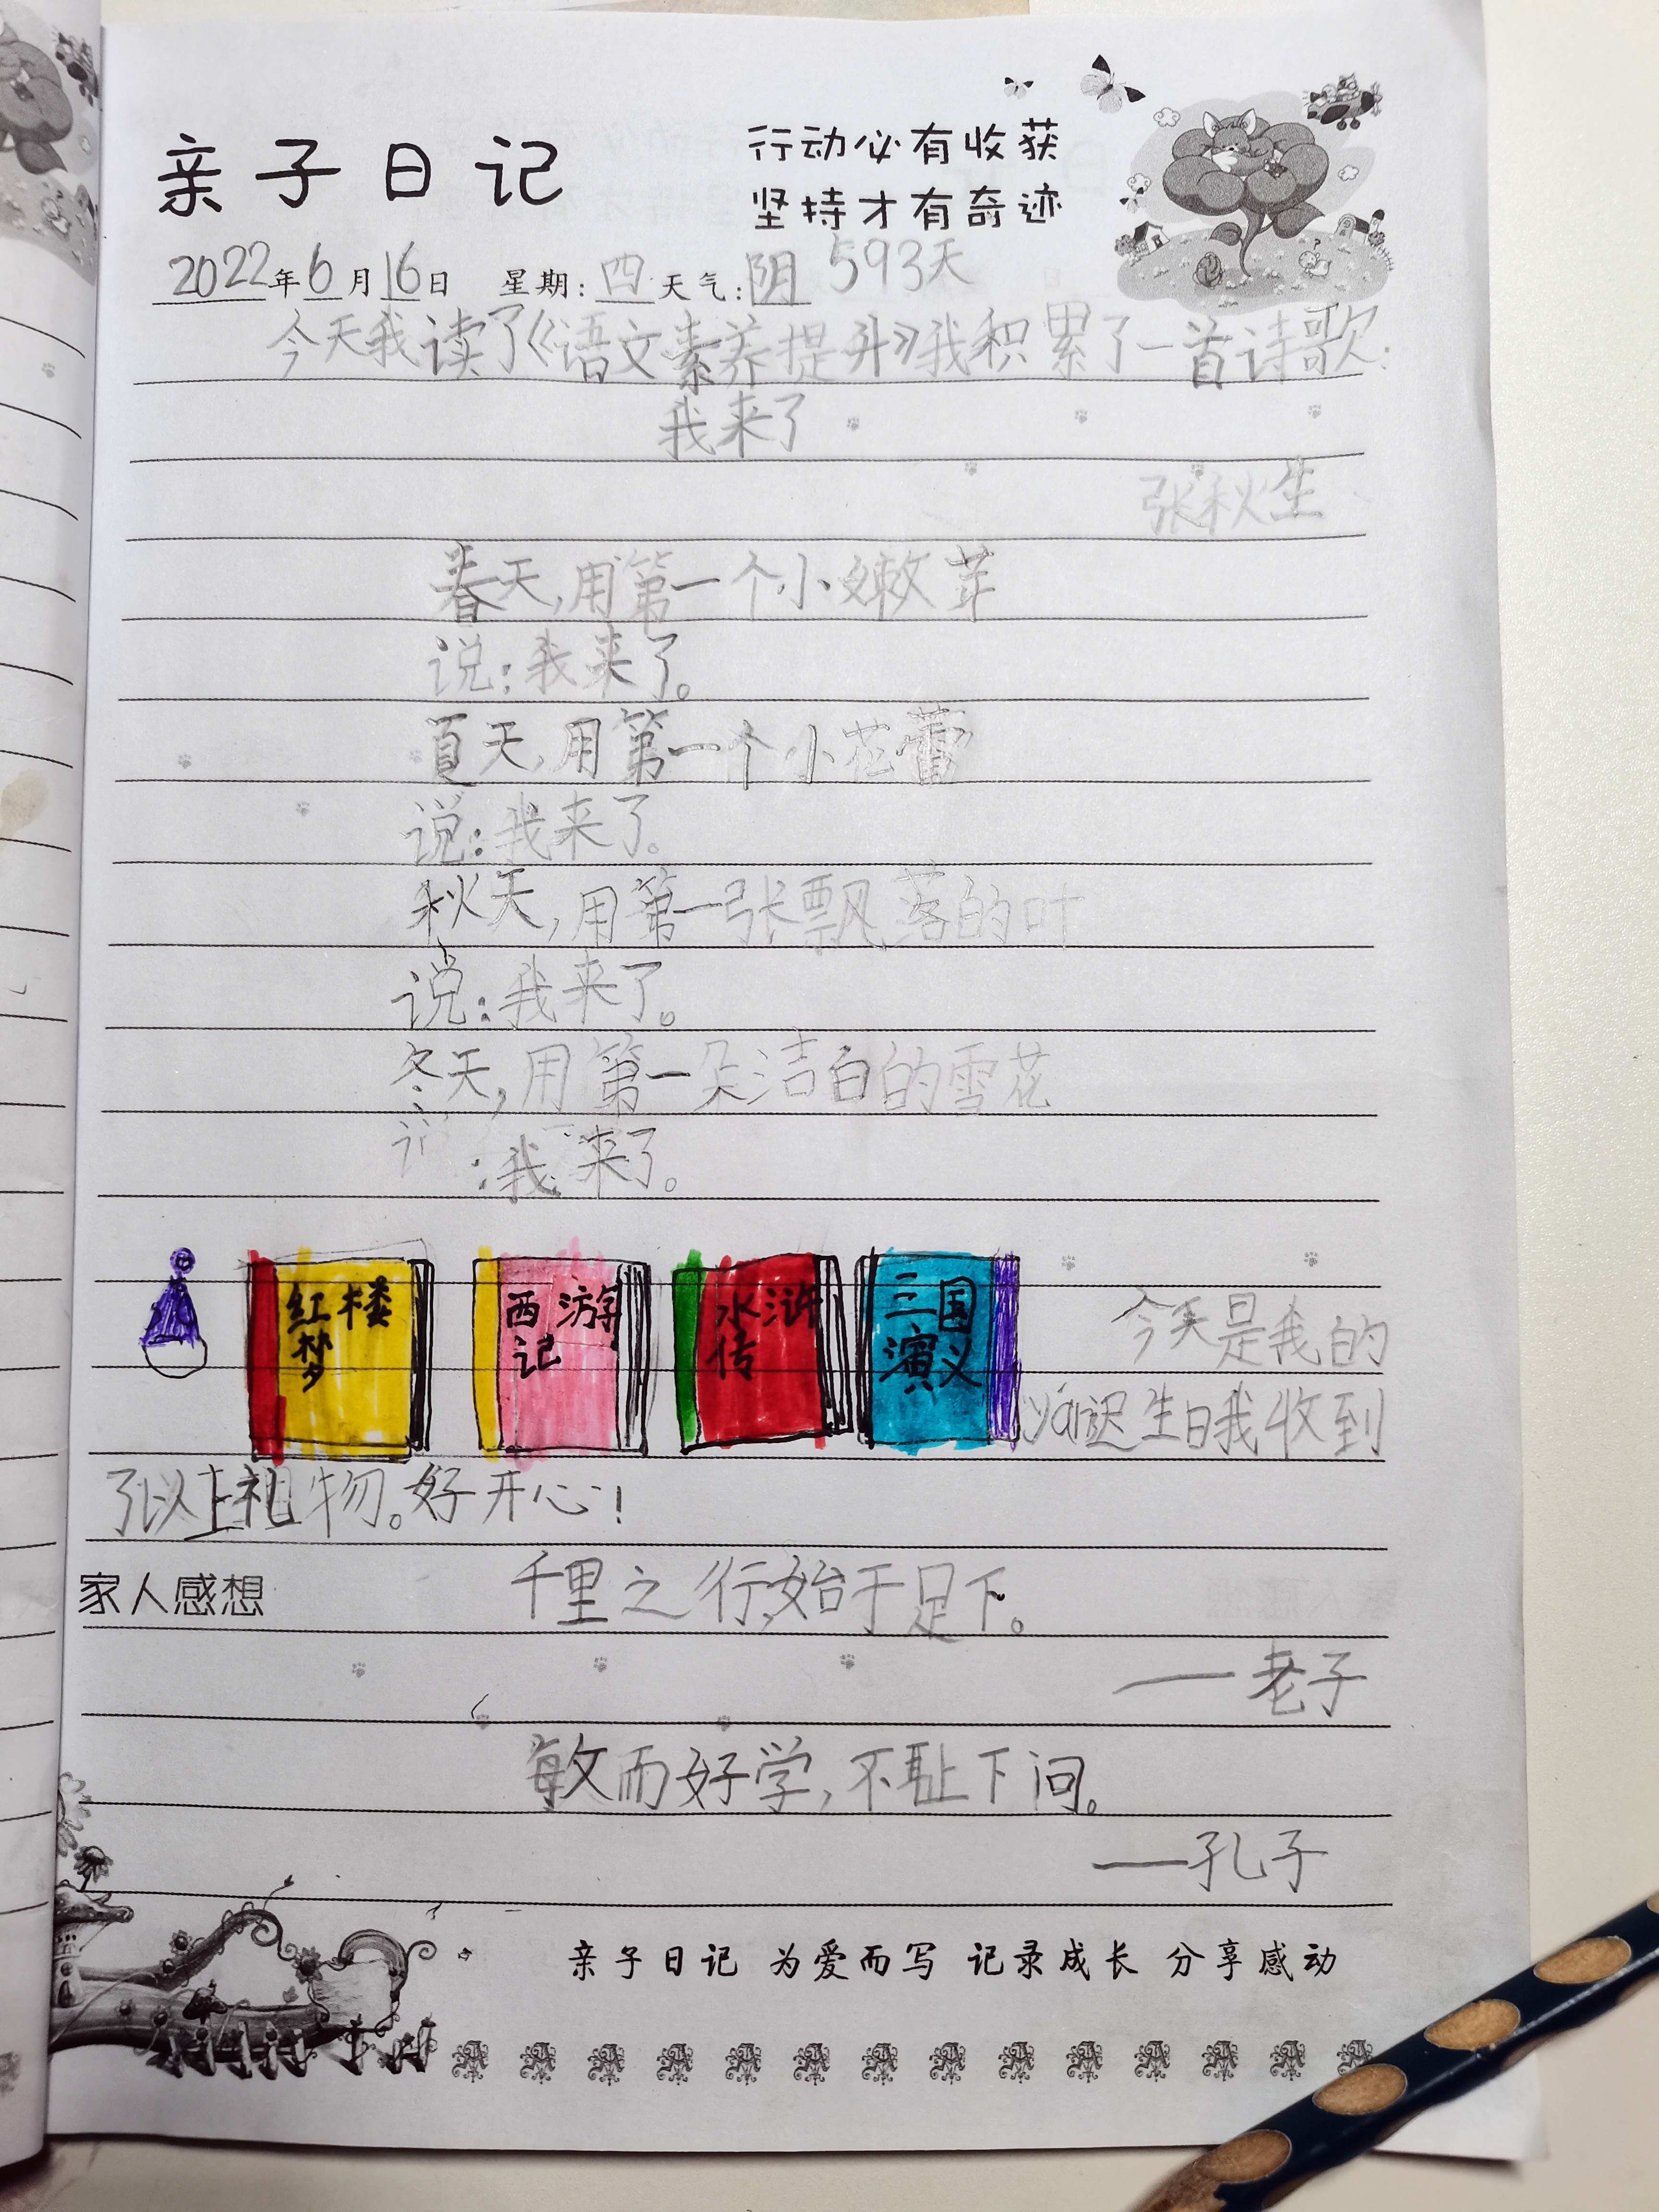 亲子日记
行动必有收获
坚持才有奇迹
2022年6月16日 星期:四 天气:阴 593天
今天我读了《语文素养提升》我积累了一首诗歌:
我来了
张秋生
春天,用第一个小嫩芽
说:我来了。
夏天,用第一个小花蕾
说:我来了。
秋天,用第一张飘落的叶
说:我来了。
冬天,用第一朵洁白的雪花
:我来了。
红楼
梦
西游
记
水浒
传
三国
演义
今天是我的
yán迟生日我收到
了以上礼物。好开心!
家人感想 千里之行,始于足下。
——老子
敏而好学,不耻下问。
——孔子
亲子日记 为爱而写 记录成长 分享感动